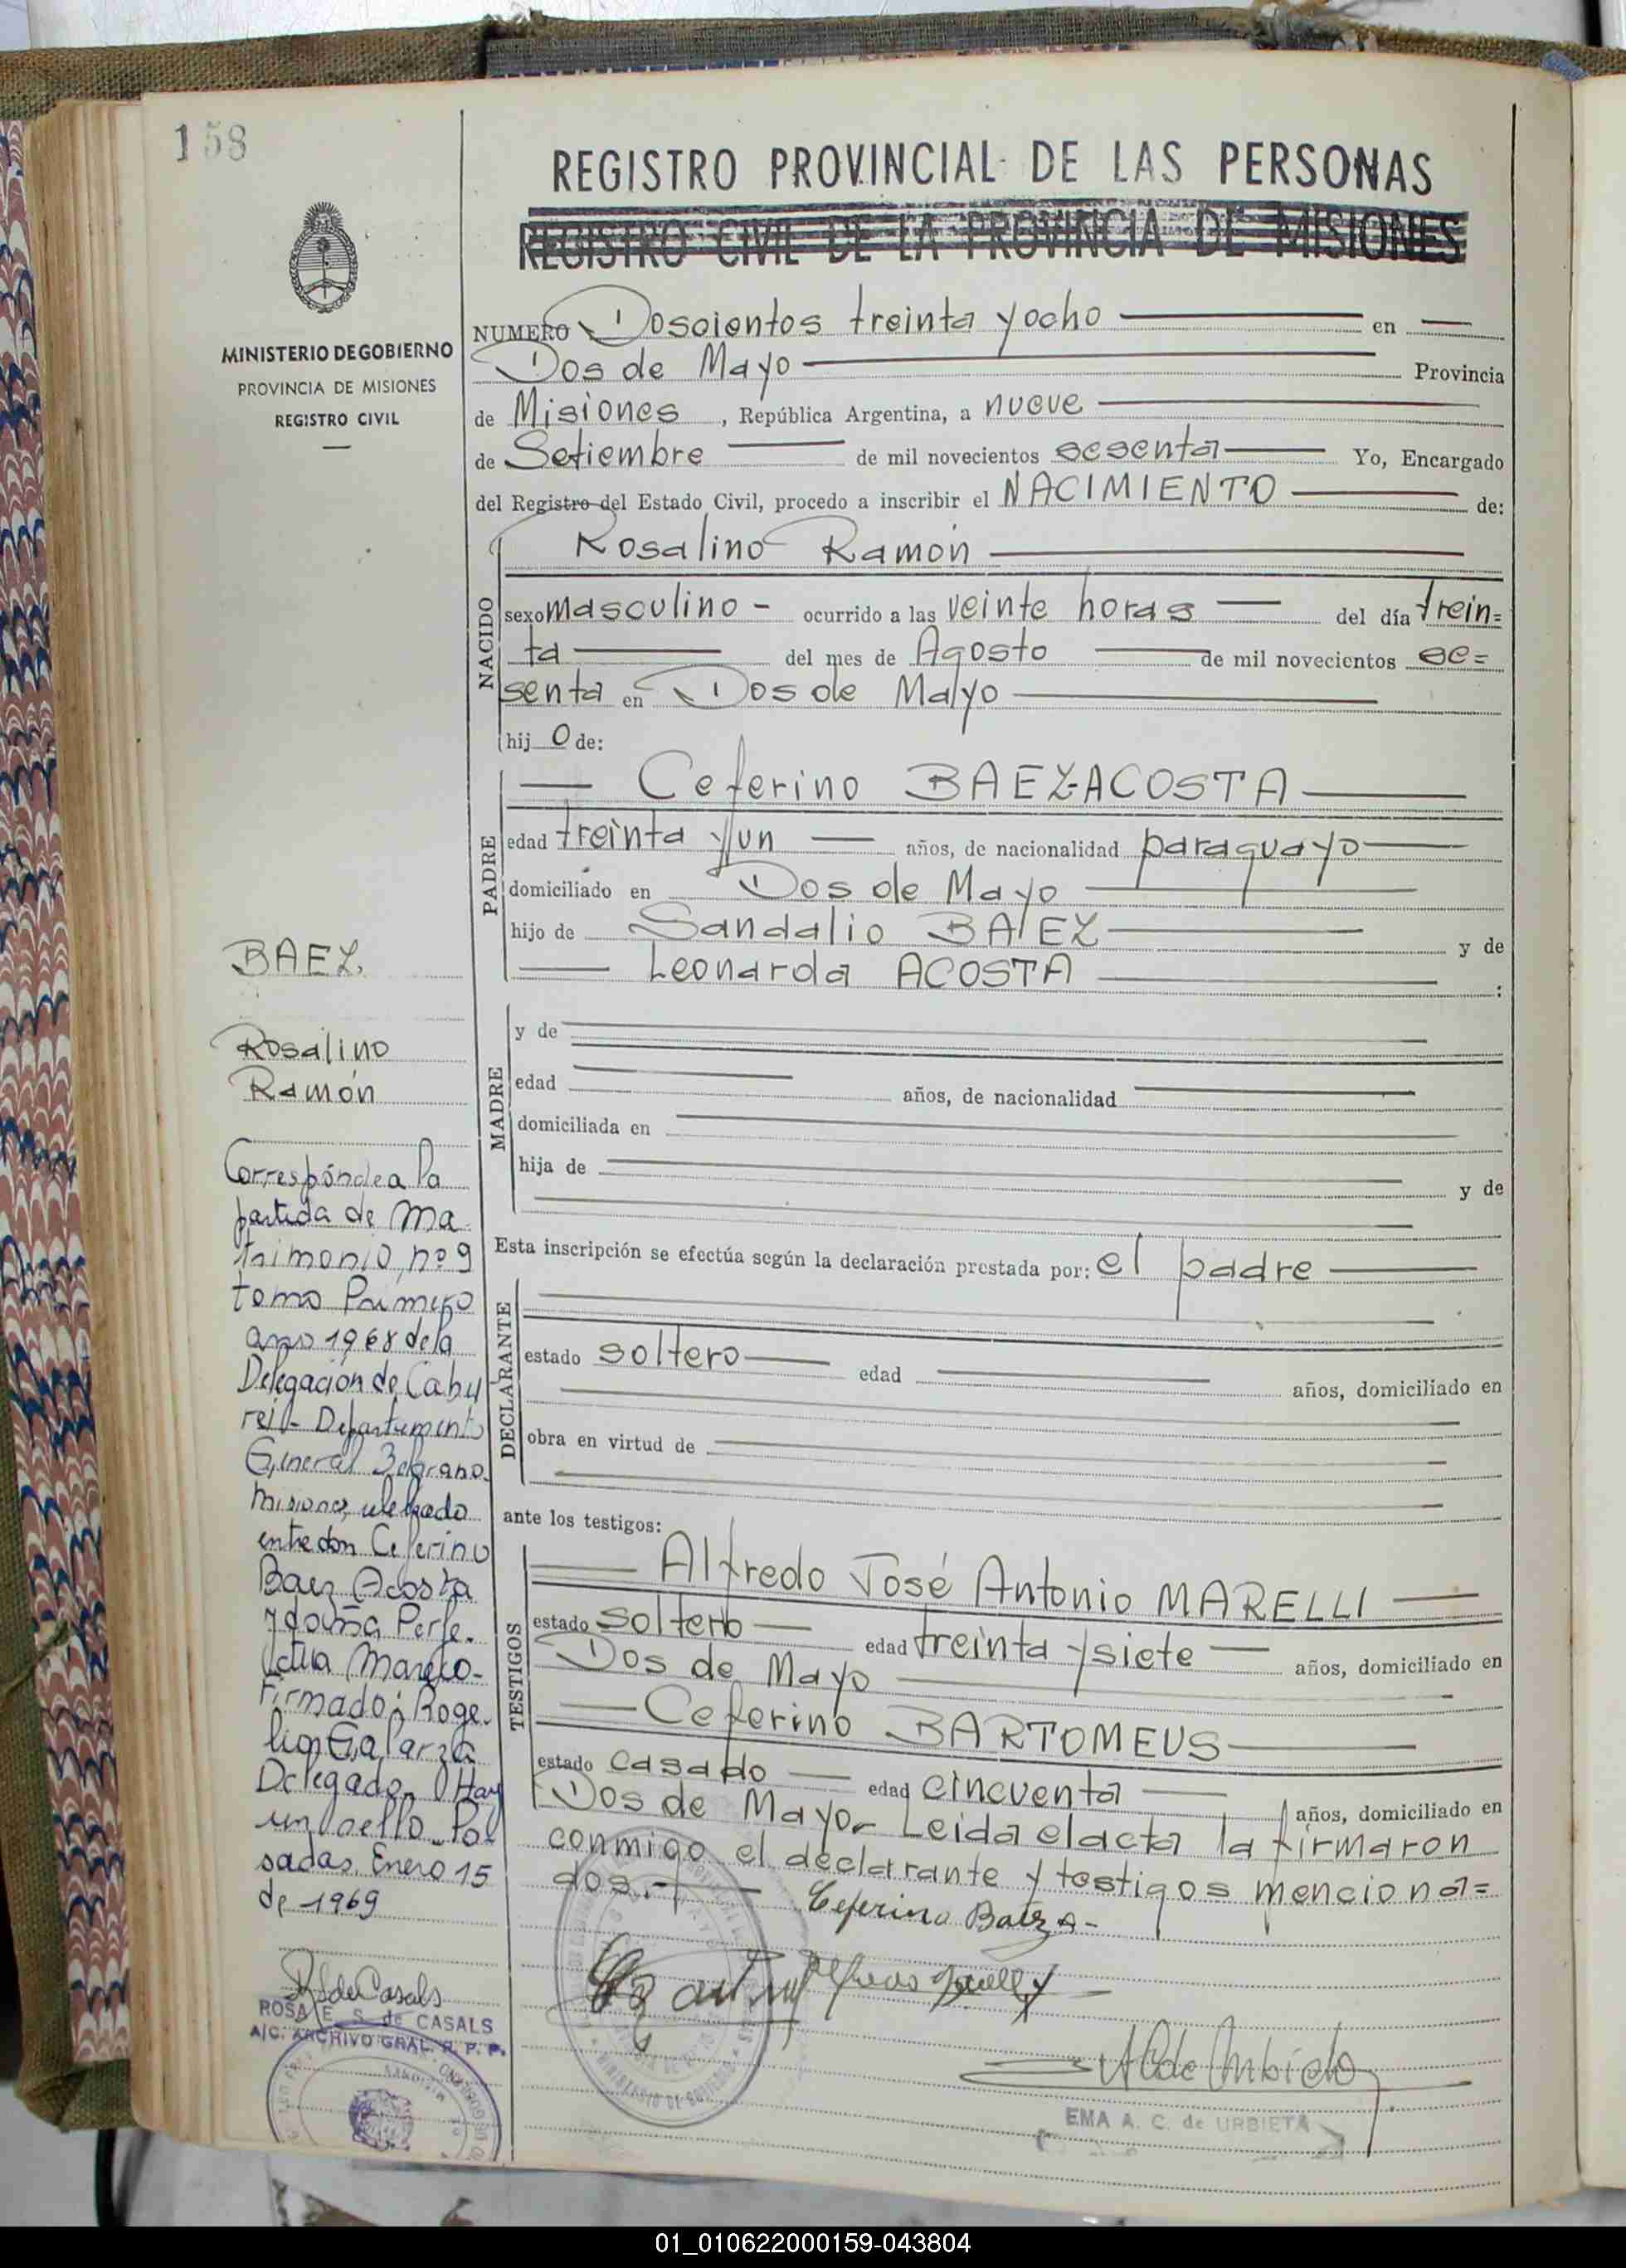 158
REGISTRO PROVINCIAL DE LAS PERSONAS
REGISTRO CIVIL DE LA PROVINCIA DE MISIONES
MINISTERIO DE GOBIERNO
PROVINCIA DE MISIONES
REGISTRO CIVIL
NUMERO Doscientos treinta y ocho en
Dos de Mayo Provincia
de Misiones, República Argentina, a nueve
de Setiembre de mil novecientos sesenta Yo, Encargado
del Registro del Estado Civil, procedo a inscribir el NACIMIENTO de:
NACIDO
Rosalino Ramón
sexo masculino - ocurrido a las veinte horas del día trein=
ta del mes de Agosto de mil novecientos se=
senta en Dos de Mayo
hijo de:
PADRE
Ceferino BAEZ-ACOSTA
edad treinta y un años, de nacionalidad paraguayo
domiciliado en Dos de Mayo
hijo de Sandalio BAEZ y de
Leonarda ACOSTA :
MADRE
y de
edad años, de nacionalidad
domiciliada en
hija de y de
Esta inscripción se efectúa según la declaración prestada por: el padre
DECLARANTE
estado soltero edad años, domiciliado en
obra en virtud de
ante los testigos:
TESTIGOS
Alfredo José Antonio MARELLI
estado soltero edad treinta y siete años, domiciliado en
Dos de Mayo
Ceferino BARTOMEUS
estado casado edad cincuenta años, domiciliado en
Dos de Mayo.- Leida el acta la firmaron
conmigo el declarante y testigos menciona=
dos.-
Ceferino Baez A-
EMA A. C. de URBIETA
BAEZ.
Rosalino
Ramón
Corresponde a la
partida de Ma
trimonio, nº 9
tomo Primero
año 1968 de la
Delegación de Cabu
rei - Departamento
General Belgrano
Misiones, celebrado
entre don Ceferino
Baez Acosta
y doña Perfe-
ctua Mareco-
Firmado: Roge-
lio Galarza
Delegado. Hay
un sello. Po-
sadas, Enero 15
de 1969
RS de Casals
ROSA E. S. de CASALS
A/C. ARCHIVO GRAL. R. P. P.
01_010622000159-043804